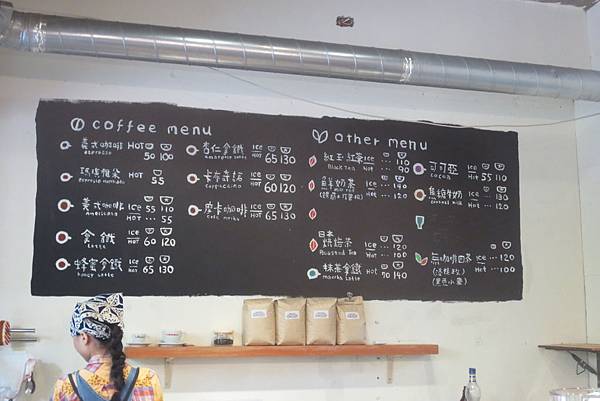 coffee menu
義式咖啡 HOT
espresso 50 100
瑪琪雅朵 HOT
55
美式咖啡 ICE 55 110
Americano HOT 55
拿鐵 ICE
Latte HOT 60 120
蜂蜜拿鐵 ICE
honey latte HOT 65 130
杏仁拿鐵 ICE
HOT 65 130
卡布奇諾 ICE
cappuccino HOT 60 120
摩卡咖啡 ICE
HOT 65 130
other menu
紅玉紅茶 ICE 110
Black tea HOT 90
鮮奶茶 ICE 140
HOT 120
日本
焙焙茶 ICE 120
Roasted Tea HOT 100
抹茶拿鐵 HOT 90 140
matcha latte
可可亞 ICE
cocoa HOT 55 110
焦糖牛奶 ICE 130
HOT
無咖啡因茶 ICE 120
HOT 100